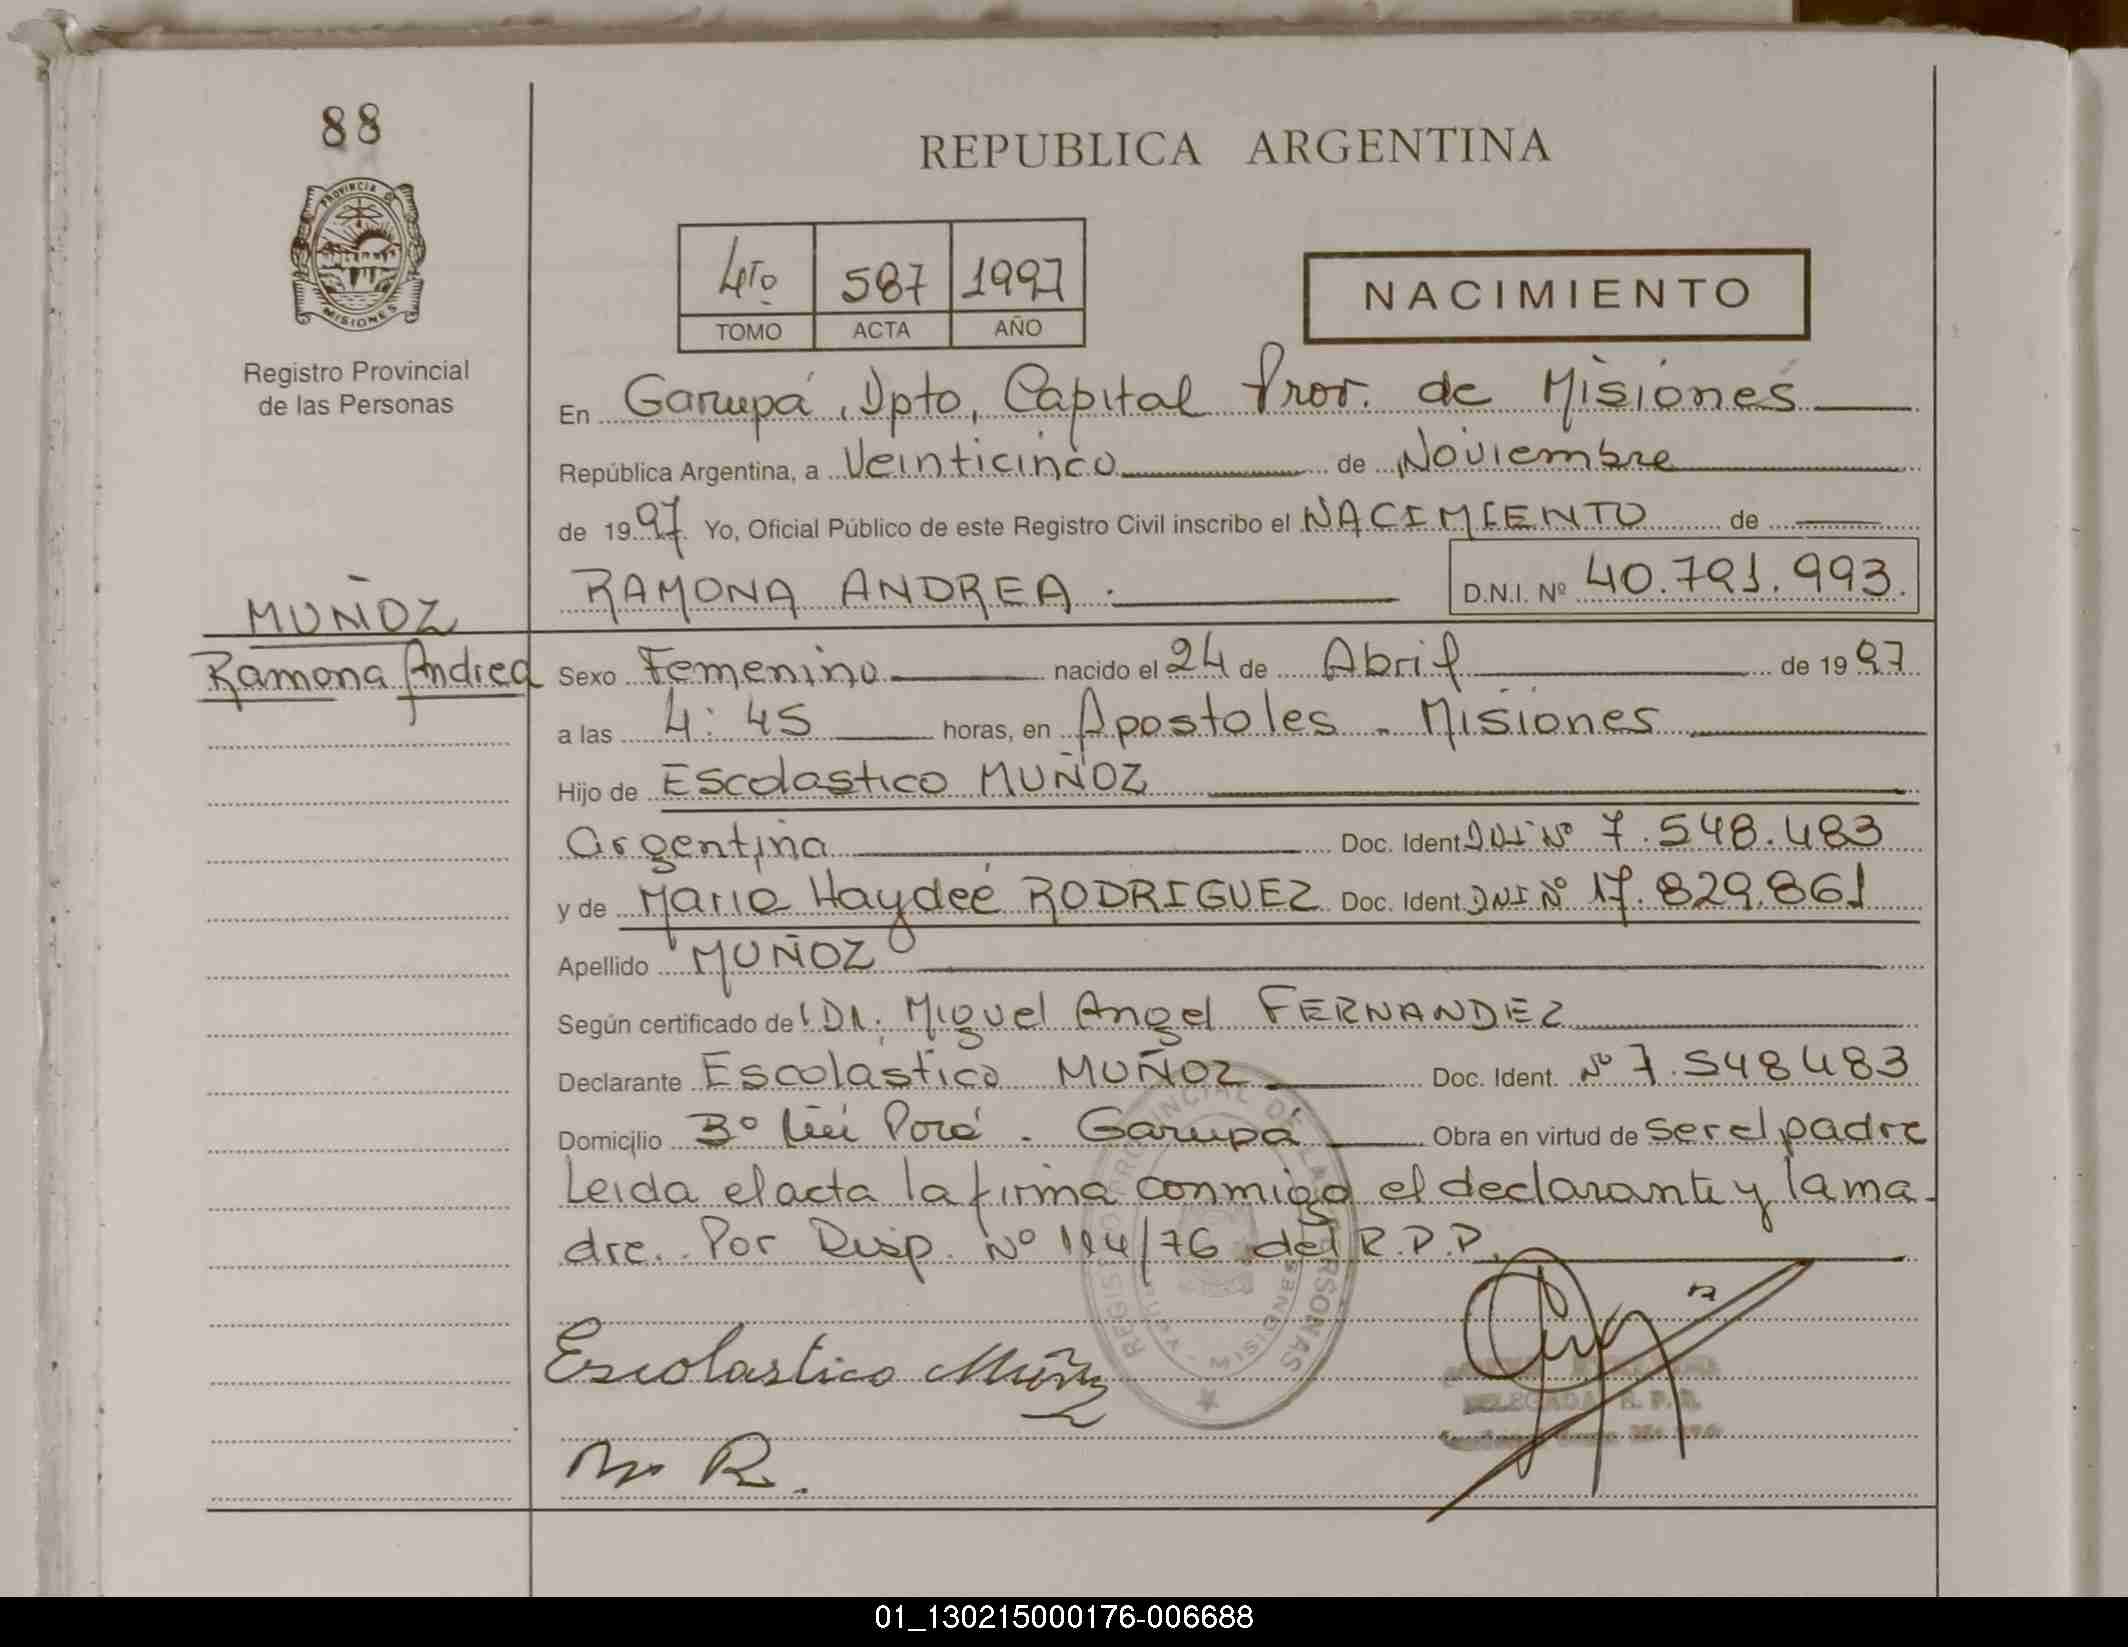 88
REPUBLICA ARGENTINA
PROVINCIA DE
MISIONES
Registro Provincial
de las Personas
4to 587 1997
TOMO ACTA AÑO
NACIMIENTO
En Garupá, Dpto, Capital Prov. de Misiones
República Argentina, a Veinticinco de Noviembre
de 1997 Yo, Oficial Público de este Registro Civil inscribo el NACIMIENTO de
RAMONA ANDREA. D.N.I. Nº 40.791.993.
MUÑOZ
Ramona Andrea
Sexo Femenino nacido el 24 de Abril de 1997
a las 4:45 horas, en Apostoles - Misiones
Hijo de Escolastico MUÑOZ
argentina Doc. Ident DNI Nº 7.548.483
y de Maria Haydeé RODRIGUEZ Doc. Ident DNI Nº 17.829.861
Apellido MUÑOZ
Según certificado del Dr. Miguel Angel FERNANDEZ
Declarante Escolástico MUÑOZ Doc. Ident. Nº 7.548483
Domicilio Bº Porá. Garupá Obra en virtud de ser el padre
Leida el acta la firma conmigo el declarante y la ma-
dre. Por Disp. Nº 114/76 del R.P.P.
REGISTRO PROVINCIAL DE LAS PERSONAS
MISIONES
Escolastico Muñoz
DELEGADA R. P. P.
M R.
01_130215000176-006688